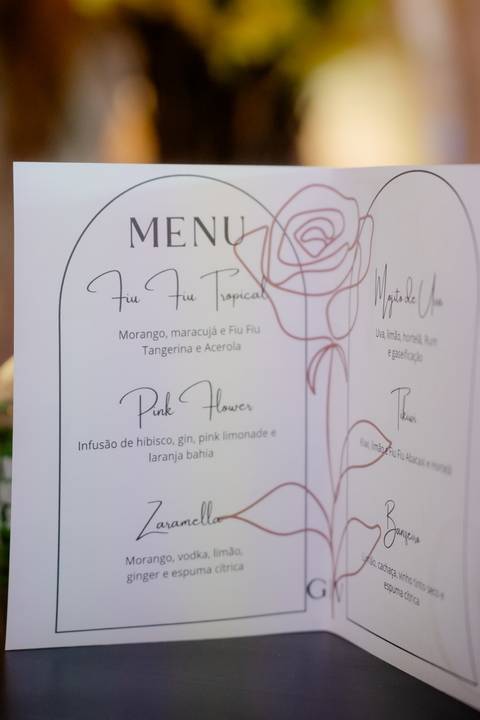 MENU
Fiu Fiu Tropical
Morango, maracujá e Fiu Fiu
Tangerina e Acerola
Pink Flower
Infusão de hibisco, gin, pink limonade e
laranja bahia
Zaramella
Morango, vodka, limão,
ginger e espuma cítrica
G
Mojito de Uva
Uva, limão, hortelã, Rum
e gaseificação
Kiwi, limão e Fiu Fiu Abacaxi e Hortelã
Limão, cachaça, vinho tinto seco e
espuma cítrica